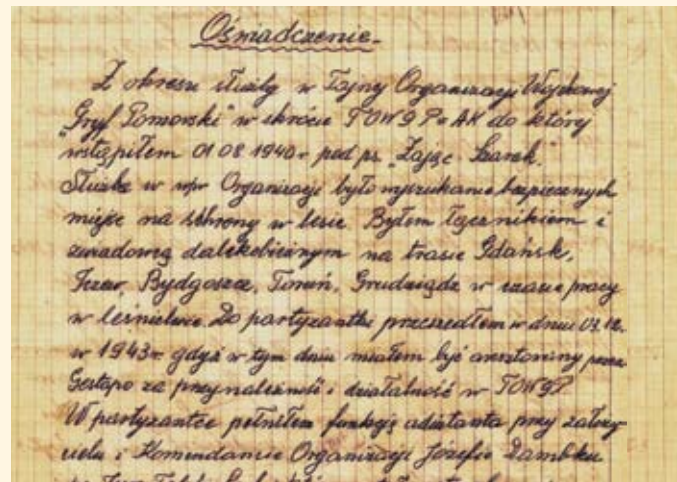 Oświadczenie.
Z okresu służby w Tajnej Organizacji Wojskowej
"Gryf Pomorski" w skrócie TOWGP=AK do której
wstąpiłem 01 08 1940r pod ps. "Zając Szarak".
Służba w wpw Organizacji było wyszukanie bezpiecznych
miejsc na schrony w lesie. Byłem łącznikiem i
zwiadowcą dalekobieżnym na trasie Gdańsk,
Tczew, Bydgoszcz, Toruń, Grudziądz w czasie pracy
w leśnictwie. Do partyzantki przeszedłem w dniu 03.12.
w 1943r. gdyż w tym dniu miałem być aresztowany przez
Gestapo za przynależność i działalność w TOWGP.
W partyzantce pełniłem funkcję adiutanta przy założy-
cielu i Komendancie Organizacji Józefie Dambku